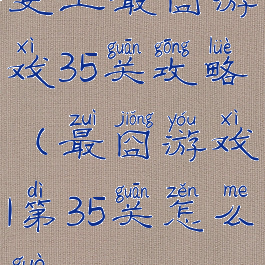 上最囧游
xì guān gōng lüè
戏35关攻略
zuì jiǒng yóu xì
（最囧游戏
dì guān zěn me
1第35关怎么
guò